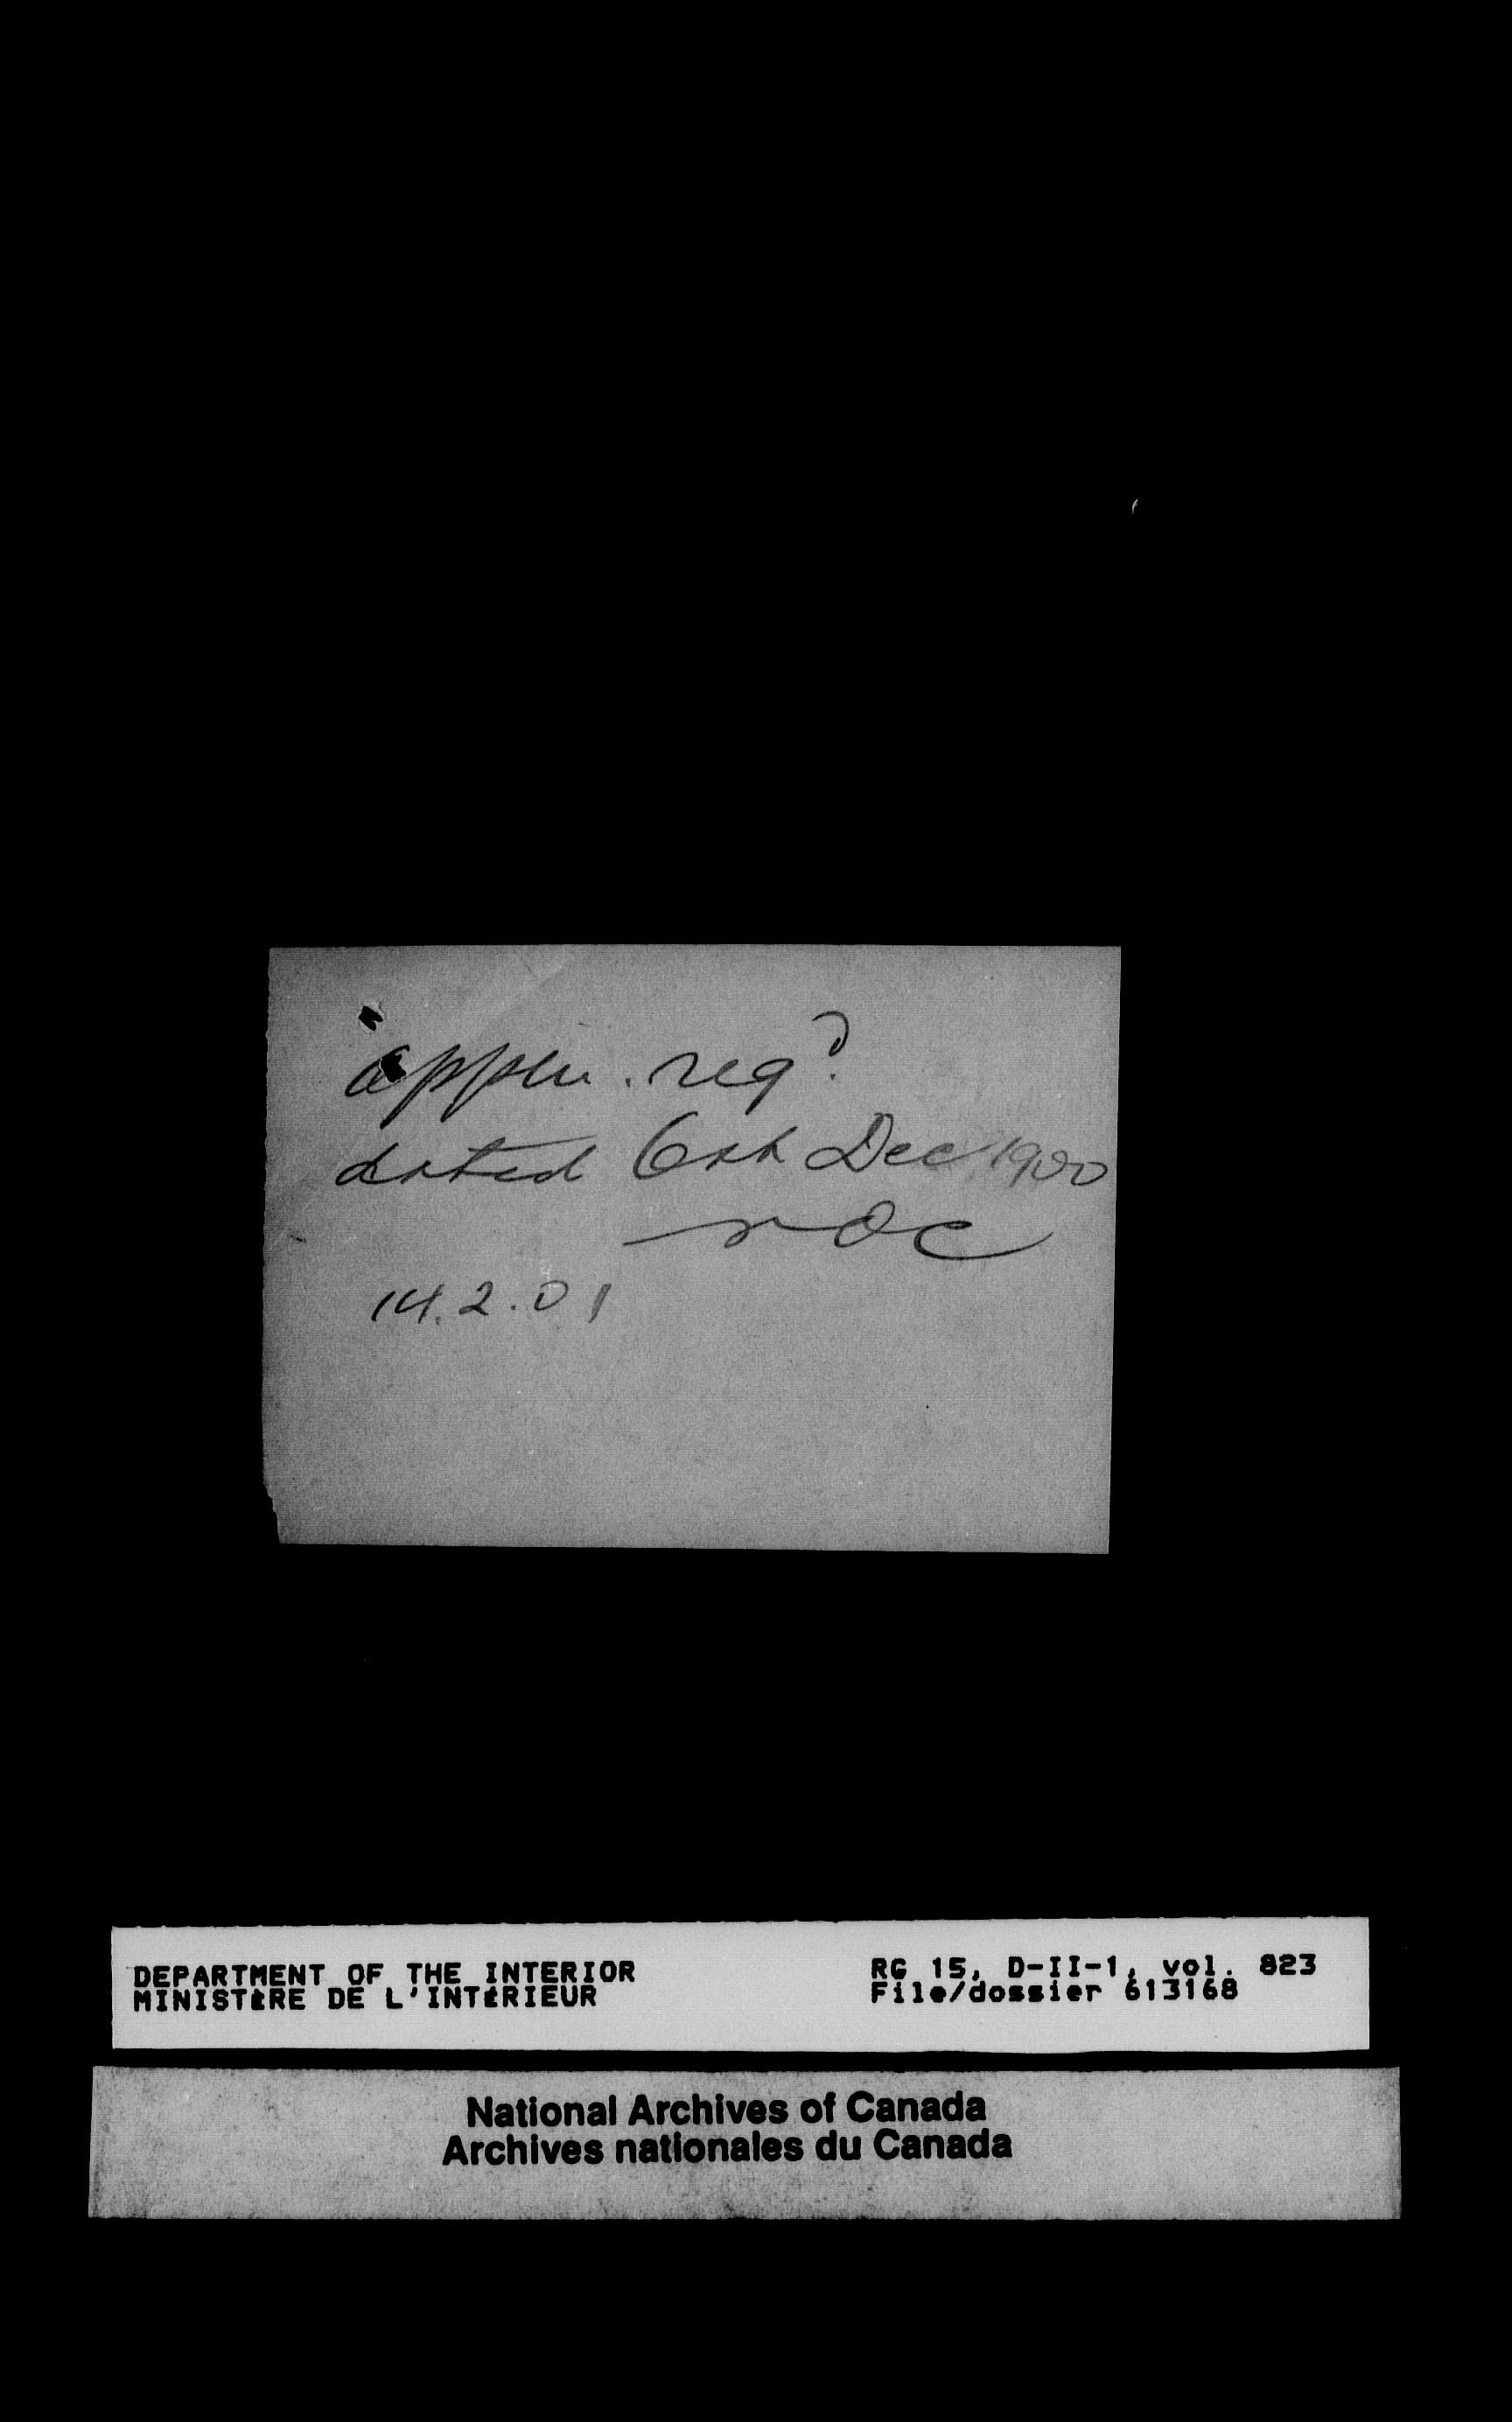 appln. reqd.
dated 6th Dec 1900
14.2.01
DEPARTMENT OF THE INTERIOR
MINISTÈRE DE L'INTÉRIEUR
RG 15, D-II-1, vol. 823
File/dossier 613168
National Archives of Canada
Archives nationales du Canada